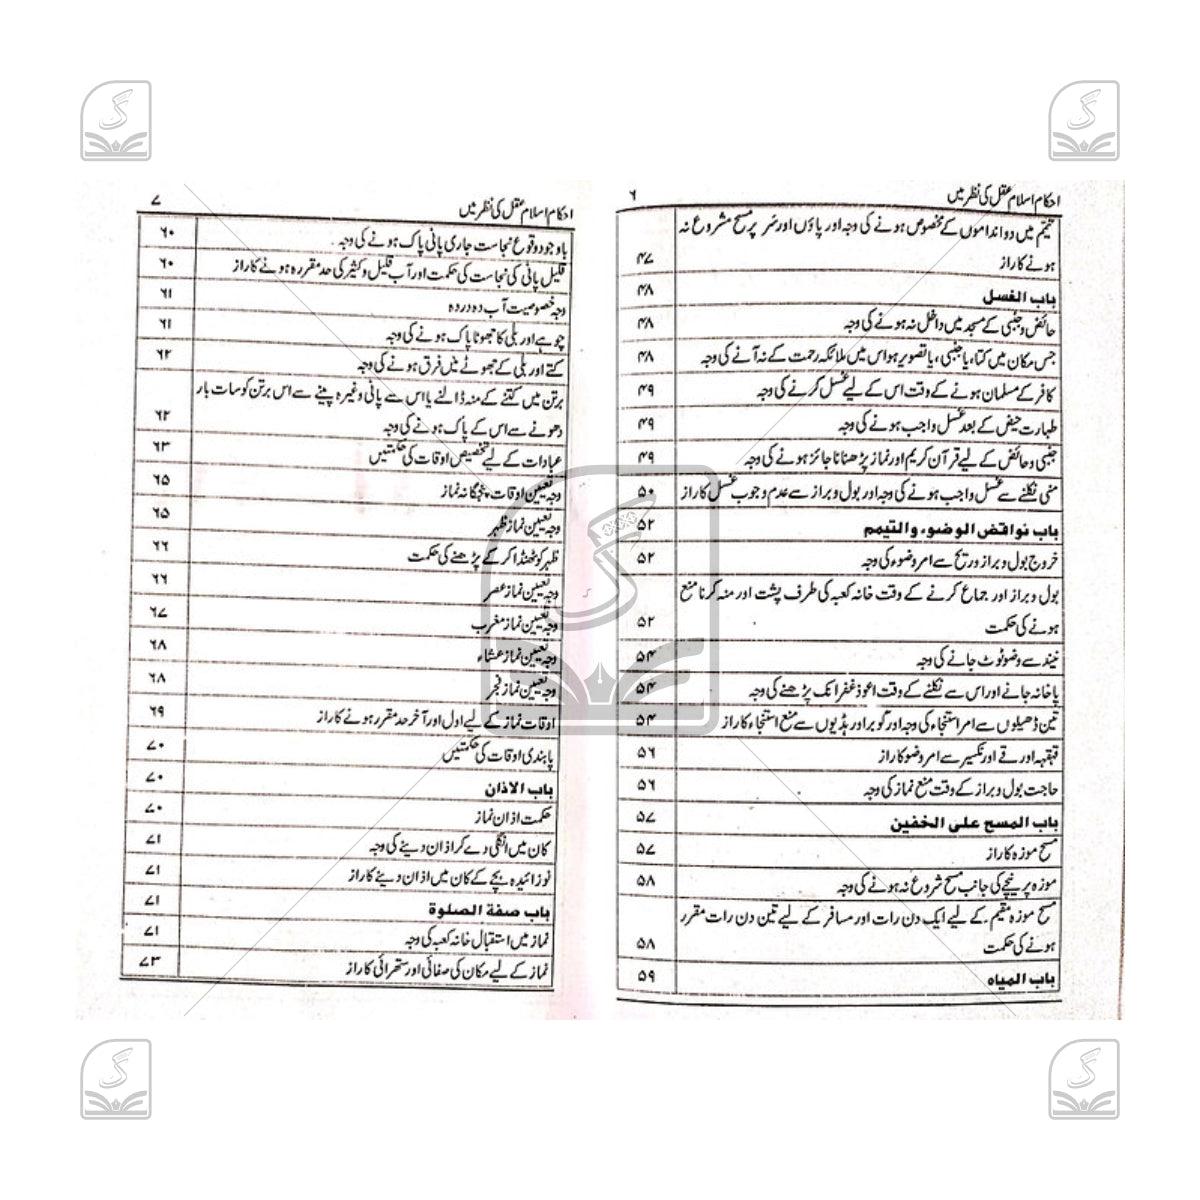 احکام اسلام عقل کی نظر میں ۶
تیمّم میں دو انداموں کے مخصوص ہونے کی وجہ اور پاؤں اور سَر پر مسح مشروع نہ
ہونے کا راز ۴۷
باب الغسل ۴۸
حائض و جنُبی کے مسجد میں داخل نہ ہونے کی وجہ ۴۸
جس مکان میں کتا، یا جنبی، یا تصویر ہو اس میں ملائکہ رحمت کے نہ آنے کی وجہ ۴۸
کافر کے مسلمان ہونے کے وقت اس کے لیے غسل کرنے کی وجہ ۴۹
طہارت حیض کے بعد غسل واجب ہونے کی وجہ ۴۹
جنبی و حائض کے لیے قرآن کریم اور نماز پڑھنا نا جائز ہونے کی وجہ ۴۹
منی نکلنے سے غسل واجب ہونے کی وجہ اور بول و براز سے عدم وجوب غسل کا راز ۵۰
باب نواقض الوضوء والتیمم ۵۲
خروج بول و براز و ریح سے امر وضوء کی وجہ ۵۲
بول و براز اور جماع کرنے کے وقت خانہ کعبہ کی طرف پشت اور منہ کرنا منع
ہونے کی حکمت ۵۲
نیند سے وضو ٹوٹ جانے کی وجہ ۵۴
پاخانہ جانے اور اس سے نکلنے کے وقت اعوذ غفرانک پڑھنے کی وجہ ۵۴
تین ڈھیلوں سے امر استنجاء کی وجہ اور گوبر اور ہڈیوں سے منع استنجاء کا راز ۵۴
قہقہہ اور قے اور نکسیر سے امر وضو کا راز ۵۶
حاجت بول و براز کے وقت منع نماز کی وجہ ۵۶
باب المسح علی الخفین ۵۷
مسح موزہ کا راز ۵۷
موزہ پر نیچے کی جانب مسح شروع نہ ہونے کی وجہ ۵۸
مسح موزہ مقیم کے لیے ایک دن رات اور مسافر کے لیے تین دن رات مقرر
ہونے کی حکمت ۵۸
باب المیاہ ۵۹
احکام اسلام عقل کی نظر میں ۷
باوجود وقوع نجاست جاری پانی پاک ہونے کی وجہ ۶۰
قلیل پانی کی نجاست کی حکمت اور آب قلیل و کثیر کی حد مقررہ ہونے کا راز ۶۰
وجہ خصوصیت آب دہ در دہ ۶۱
چوہے اور بلی کا جھوٹا پاک ہونے کی وجہ ۶۱
کتے اور بلی کے جھوٹے میں فرق ہونے کی وجہ ۶۲
برتن میں کتے کے منہ ڈالنے یا اس سے پانی وغیرہ پینے سے اس برتن کو سات بار
دھونے سے اس کے پاک ہونے کی وجہ ۶۲
عبادات کے لیے تخصیص اوقات کی حکمتیں ۶۳
وجہ تعیین اوقات پنجگانہ نماز ۶۵
وجہ تعیین نماز ظہر ۶۵
ظہر کو ٹھنڈا کر کے پڑھنے کی حکمت ۶۶
وجہ تعیین نماز عصر ۶۶
وجہ تعیین نماز مغرب ۶۷
وجہ تعیین نماز عشاء ۶۸
وجہ تعیین نماز فجر ۶۸
اوقات نماز کے لیے اول اور آخر حد مقرر ہونے کا راز ۶۹
پابندی اوقات کی حکمتیں ۷۰
باب الاذان ۷۰
حکمت اذان نماز ۷۰
کان میں انگلی دے کر اذان دینے کی وجہ ۷۱
نوزائیدہ بچے کے کان میں اذان دینے کا راز ۷۱
باب صفة الصلوة ۷۱
نماز میں استقبال خانہ کعبہ کی وجہ ۷۱
نماز کے لیے مکان کی صفائی اور ستھرائی کا راز ۷۳